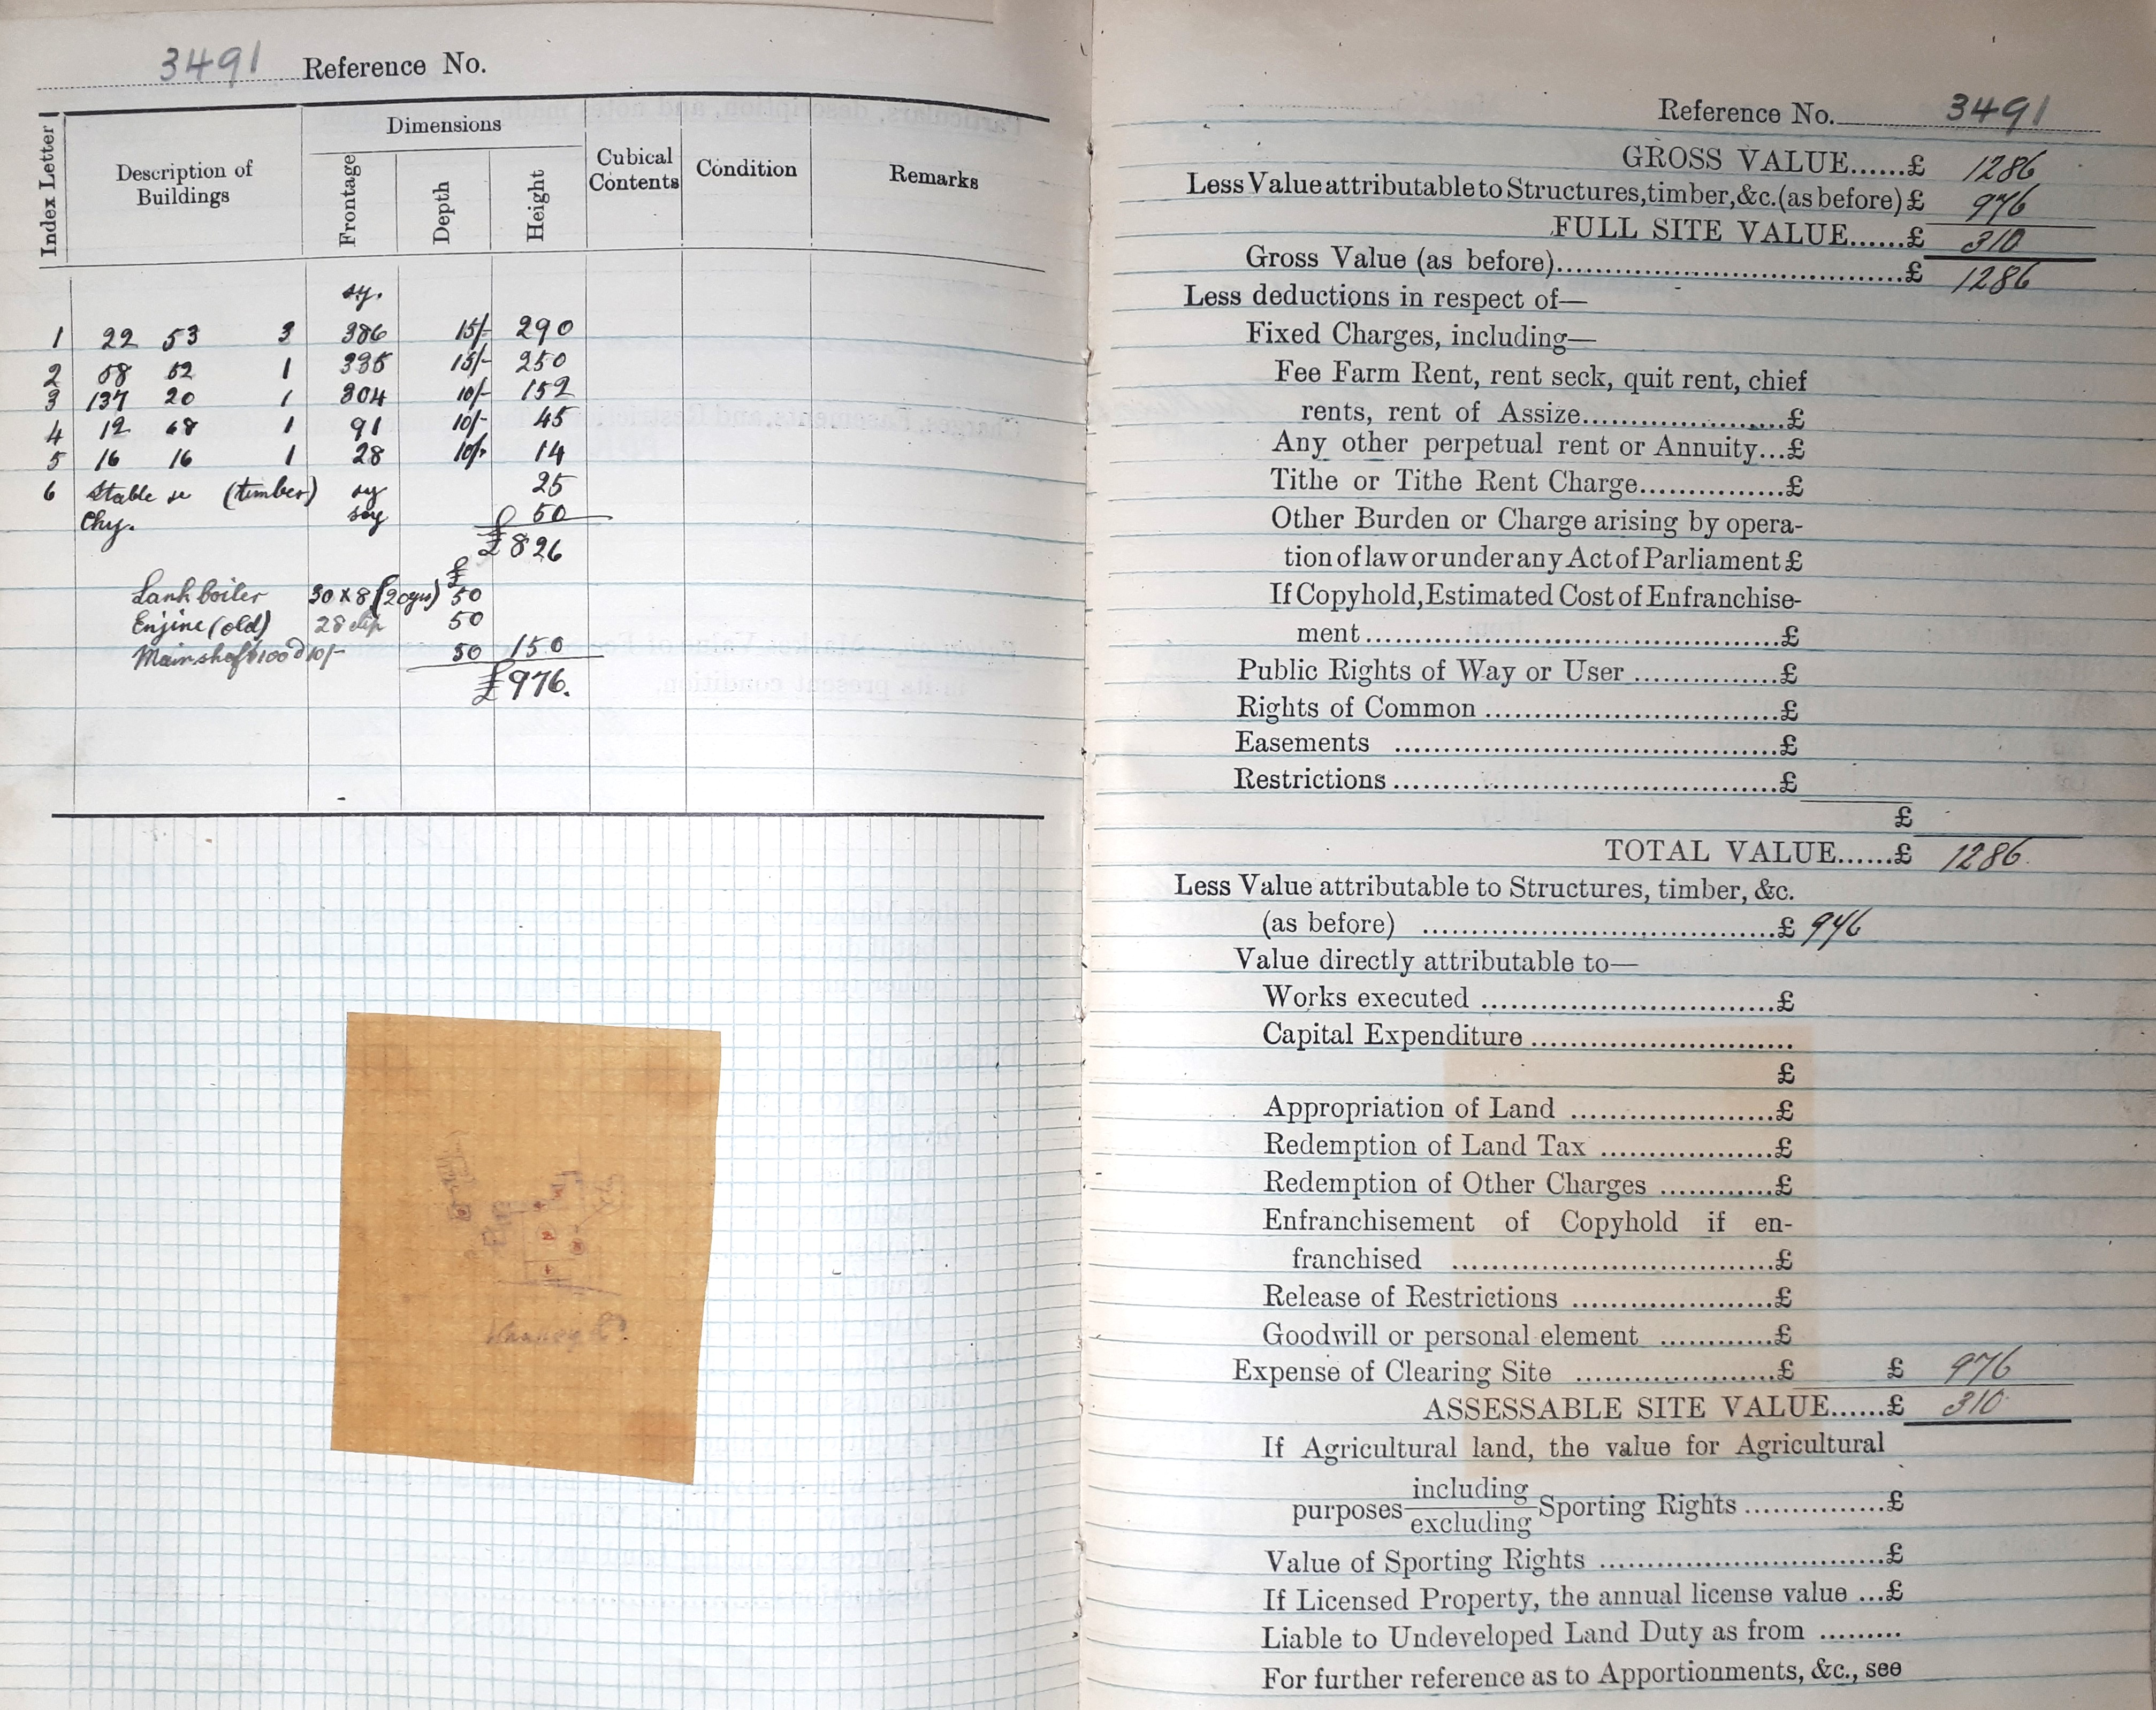 3491 Reference No.
Index Letter
Description of Buildings
Dimensions
Frontage
Depth
Height
Cubical Contents
Condition
Remarks
sy.
1 22 53 3 386 15/- 290
2 58 52 1 335 15/- 250
3 137 20 1 304 10/- 152
4 12 68 1 91 10/- 45
5 16 16 1 28 10/- 14
6 Stable (timber) sy 25
Chy. say 50
£826
£
Lanh boiler 30 x 8 (20yrs) 50
Engine (old) 28 50
Mainshaft 100 @ 10/- 50 150
£976.
Reference No. 3491
GROSS VALUE......£ 1286
Less Value attributable to Structures, timber, &c. (as before) £ 976
FULL SITE VALUE......£ 310
Gross Value (as before)..........£ 1286
Less deductions in respect of—
Fixed Charges, including—
Fee Farm Rent, rent seck, quit rent, chief
rents, rent of Assize..........£
Any other perpetual rent or Annuity...£
Tithe or Tithe Rent Charge..........£
Other Burden or Charge arising by opera-
tion of law or under any Act of Parliament £
If Copyhold, Estimated Cost of Enfranchise-
ment..........£
Public Rights of Way or User..........£
Rights of Common..........£
Easements..........£
Restrictions..........£
£
TOTAL VALUE......£ 1286.
Less Value attributable to Structures, timber, &c.
(as before)..........£ 976
Value directly attributable to—
Works executed..........£
Capital Expenditure..........
£
Appropriation of Land..........£
Redemption of Land Tax..........£
Redemption of Other Charges..........£
Enfranchisement of Copyhold if en-
franchised..........£
Release of Restrictions..........£
Goodwill or personal element..........£
Expense of Clearing Site..........£ £ 976
ASSESSABLE SITE VALUE......£ 310
If Agricultural land, the value for Agricultural
purposes including excluding Sporting Rights..........£
Value of Sporting Rights..........£
If Licensed Property, the annual license value...£
Liable to Undeveloped Land Duty as from.........
For further reference as to Apportionments, &c., see